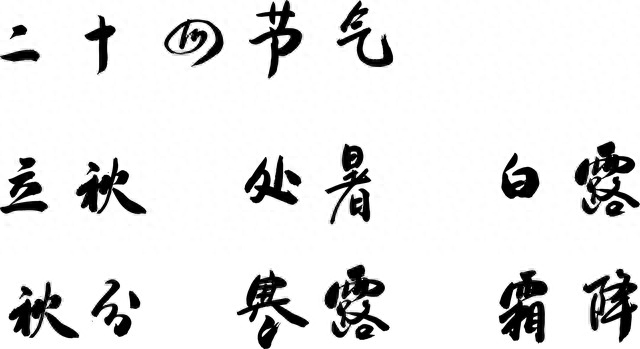 二十四节气
立秋 处暑 白露
秋分 寒露 霜降